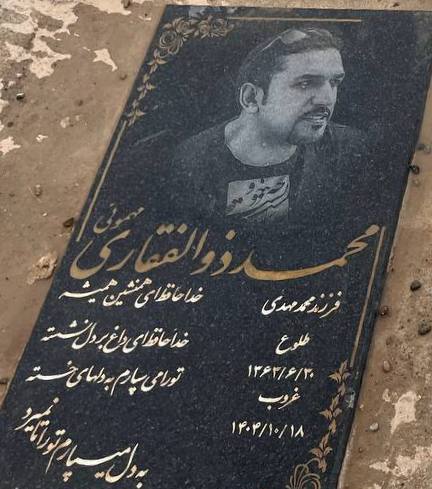 محمد ذوالفقاری
میمونی
فرزند محمدمهدی
طلوع
۱۳۶۳/۶/۳۰
غروب
۱۴۰۴/۱۰/۱۸
خداحافظ ای همنشین همیشه
خداحافظ ای داغ بر دل نشسته
تو را می سپارم به دلهای خسته
به دل میسپارم تو را تا نمیرد